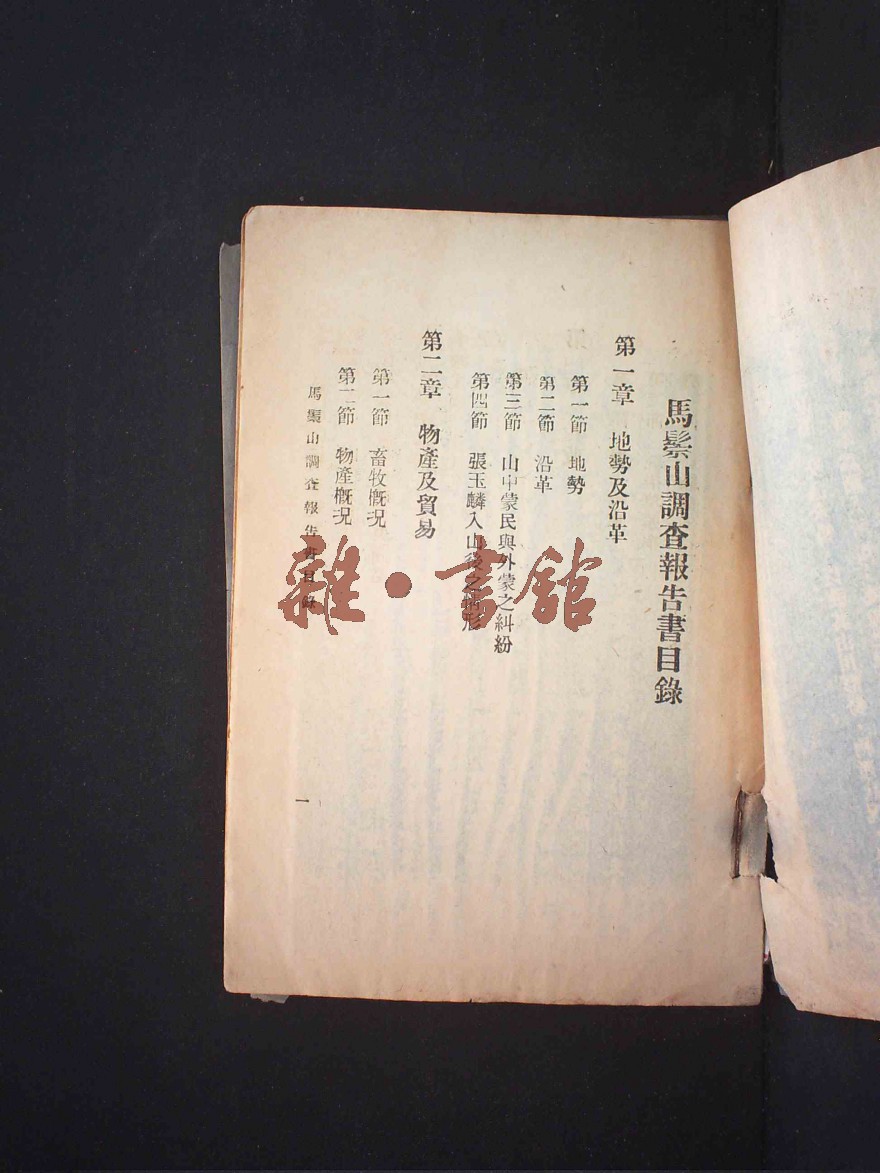 馬鬃山調查報告書目錄
第一章　地勢及沿革
第一節　地勢
第二節　沿革
第三節　山中蒙民與外蒙之糾紛
第四節　張玉麟入山後之情形
第二章　物產及貿易
第一節　畜牧概況
第二節　物產概況
馬鬃山調查報告書目錄
一
雜·書館